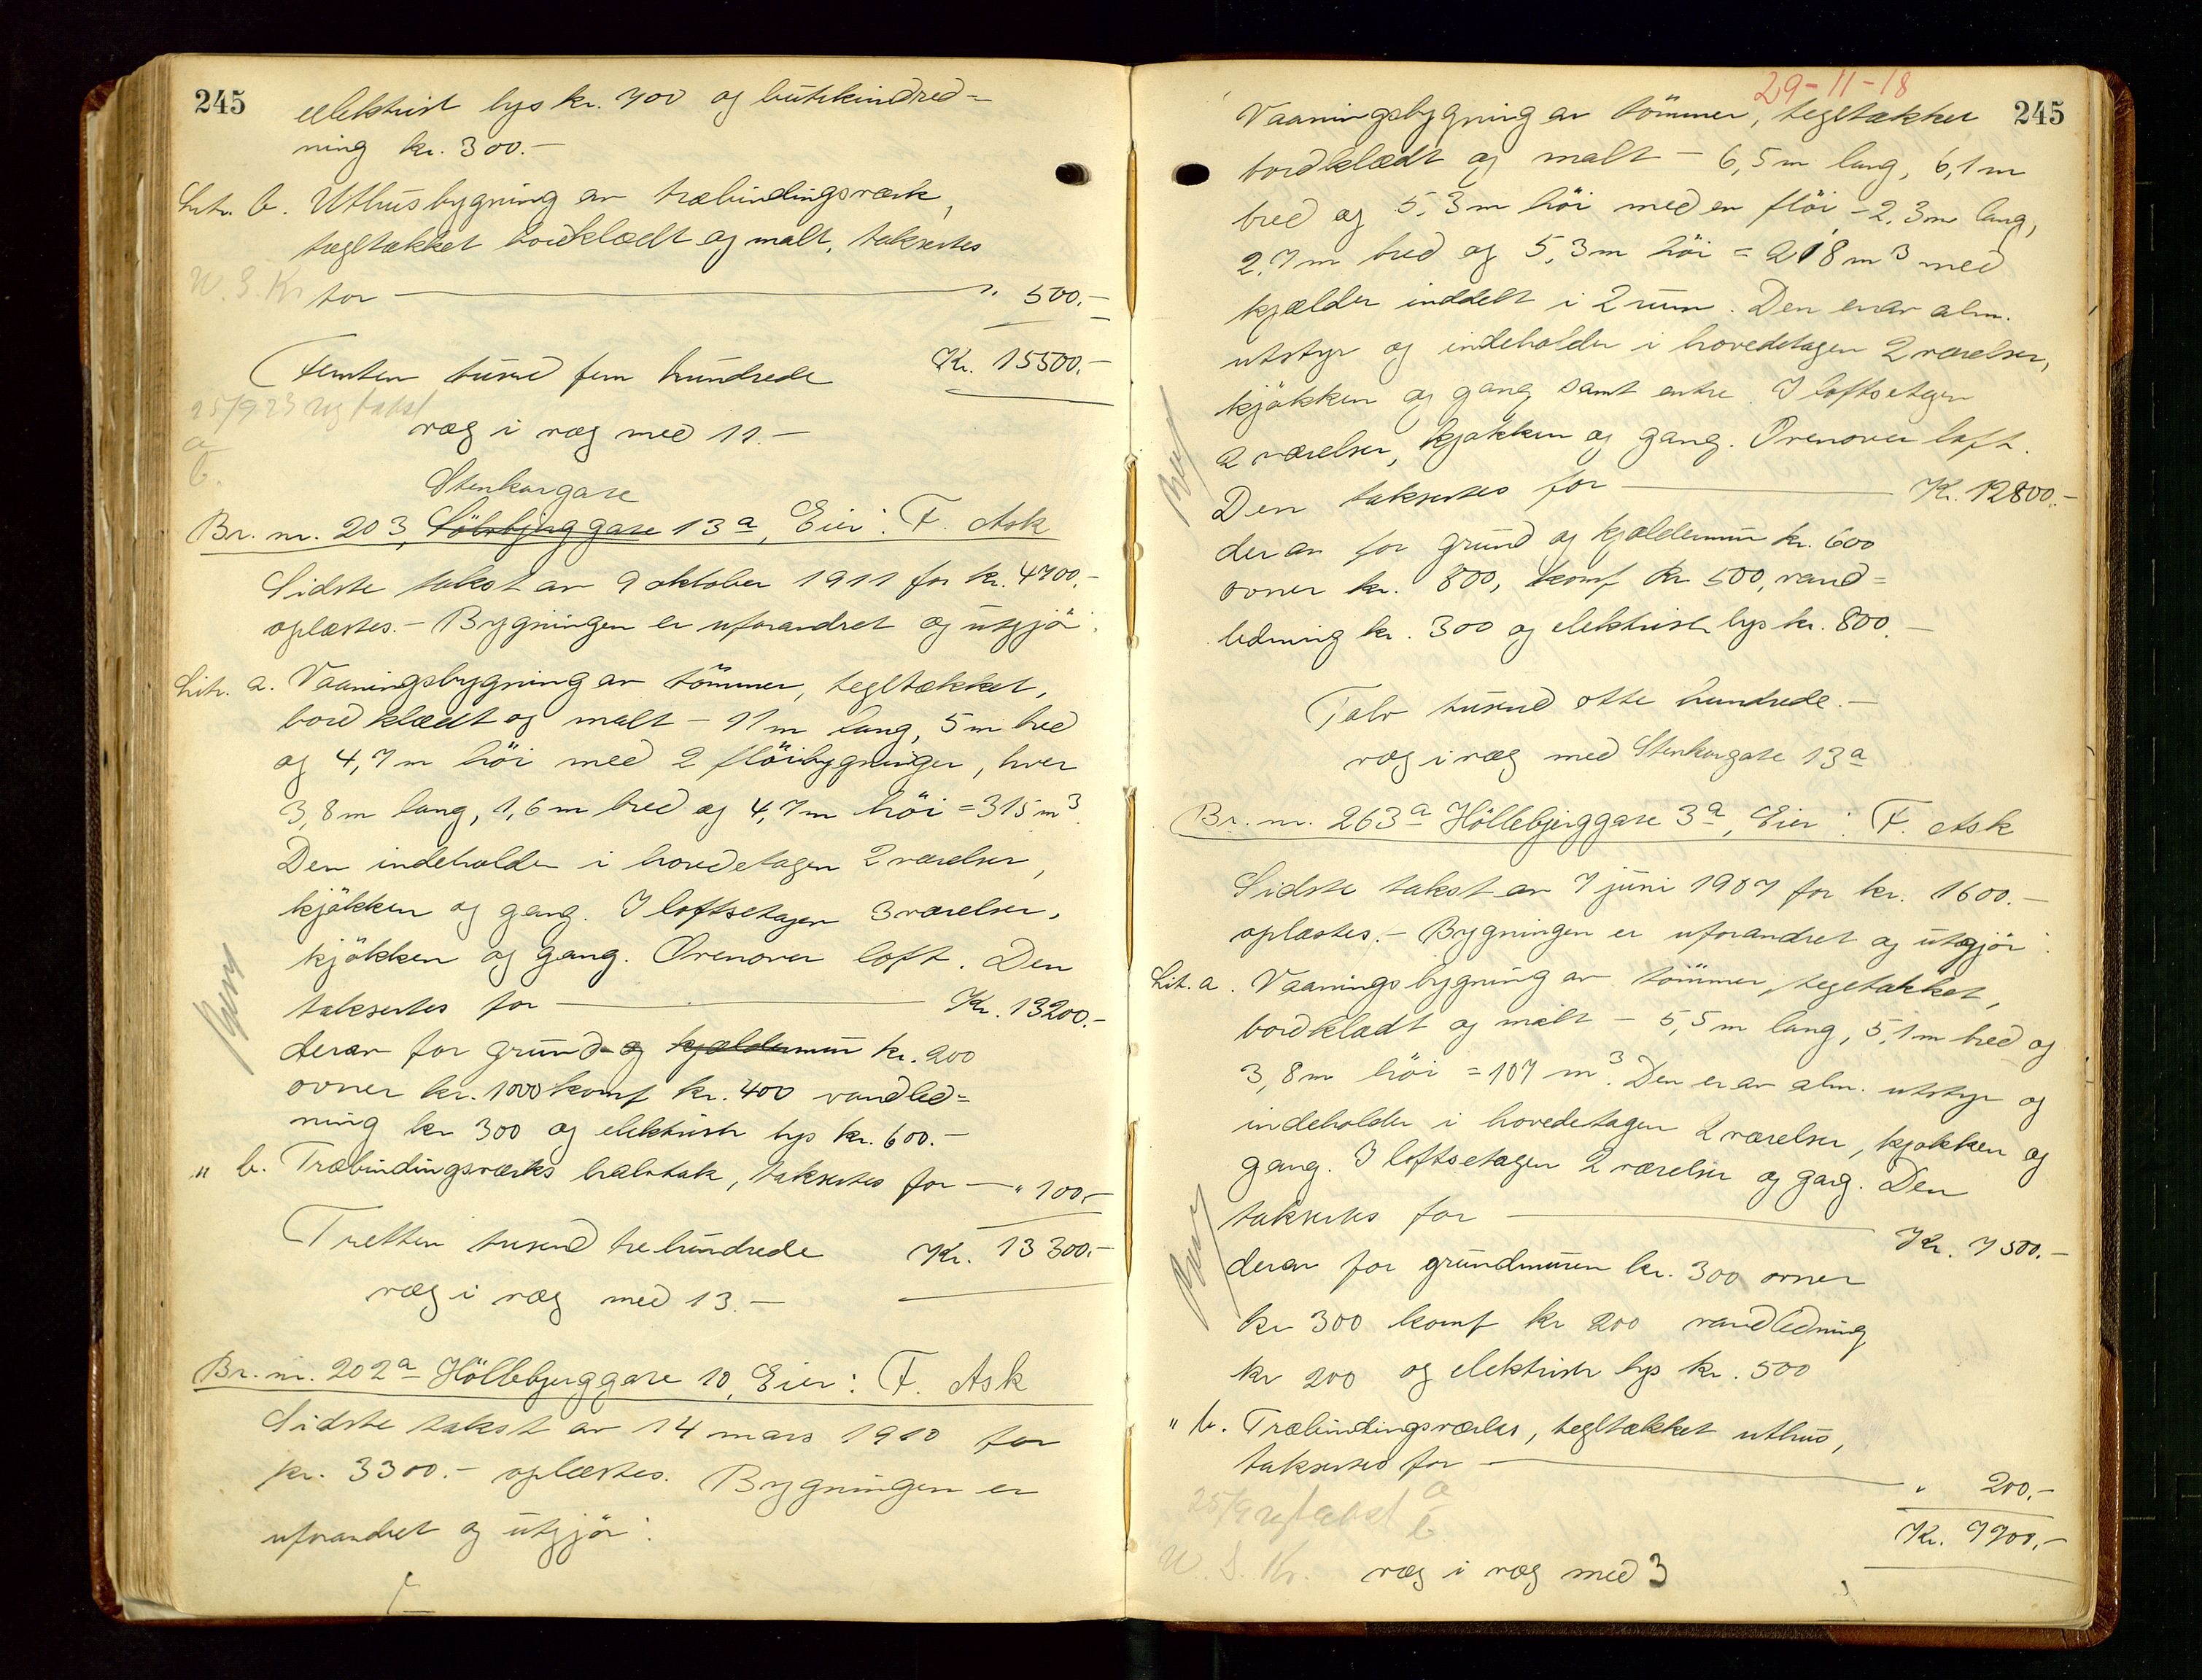 245
elektrisk lys kr. 700 og butikindred=
ning kr. 300.-
Litr. b. Uthusbygning av træbindingsværk,
tegltækket bordklædt og malt, takseres
W. S. Kr
for — " 500.-
Femten tusend fem hundrede Kr. 15500.-
25/9 23 ny takst
væg i væg med 11.-
a
b.
Stenkargate
Br. nr. 203, Sölvbjerggate 13 a, Eier: F. Ask
Sidste takst av 9 oktober 1911 for kr. 4700.-
oplæstes. - Bygningen er uforandret og utgjör:
Litr. a. Vaaningsbygning av tömmer, tegltækket,
bordklædt og malt - 11 m lang, 5 m bred
og 4,7 m höi med 2 flöibygninger, hver
3,8 m lang, 1,6 m bred og 4,7 m höi = 315 m³.
Den indeholder i hovedetagen 2 værelser,
kjökken og gang. I loftsetagen 3 værelser,
kjökken og gang. Ovenover loft. Den
takseres for — Kr. 13200.-
derav for grund og kjældermur kr. 200
ovner kr. 1000 komf kr. 400 vandled=
ning kr 300 og elektrisk lys kr. 600.-
" b. Træbindingsværks halvtak, takseres for — " 100.-
Tretten tusend tre hundrede Kr. 13300.-
væg i væg med 13.-
Br. nr. 202 a Höllebjerggate 10, Eier: F. Ask
Sidste takst av 14 mars 1910 for
kr. 3300.- oplæstes. Bygningen er
uforandret og utgjör:
29-11-18
245
Vaaningsbygning av tömmer, tegltækket
bordklædt og malt - 6,5 m lang, 6,1 m
bred og 5,3 m höi med en flöi - 2,3 m lang,
2,7 m bred og 5,3 m höi = 218 m³ med
kjælder inddelt i 2 rum. Den er av alm.
utstyr og indeholder i hovedetagen 2 værelser,
kjökken og gang samt entre. I loftsetagen
2 værelser, kjökken og gang. Ovenover loft.
Den takseres for — Kr. 12800.-
derav for grund og kjældermur kr. 600
ovner kr. 800, komf kr 500, vand=
ledning kr. 300 og elektrisk lys kr. 800.-
Tolv tusend otte hundrede.-
væg i væg med Stenkargate 13 a
Br. nr. 263 a Höllebjerggate 3 a, Eier: F. Ask
Sidste takst av 7 juni 1907 for kr. 1600.-
oplæstes. - Bygningen er uforandret og utgjör:
Lit. a. Vaaningsbygning av tömmer, tegltækket,
bordklædt og malt - 5,5 m lang, 5,1 m bred og
3,8 m höi = 107 m³. Den er av alm. utstyr og
indeholder i hovedetagen 2 værelser, kjøkken og
gang. I loftsetagen 2 værelser og gang. Den
takseres for — Kr. 7500.-
derav for grundmuren kr. 300 ovner
kr 300 komf kr 200 vandledning
kr 200 og elektrisk lys kr. 500
" b. Træbindingsværks, tegltækket uthus,
takseres for — " 200.-
25/9 ny takst a
b
Kr. 7700.-
W. S. Kr. væg i væg med 3